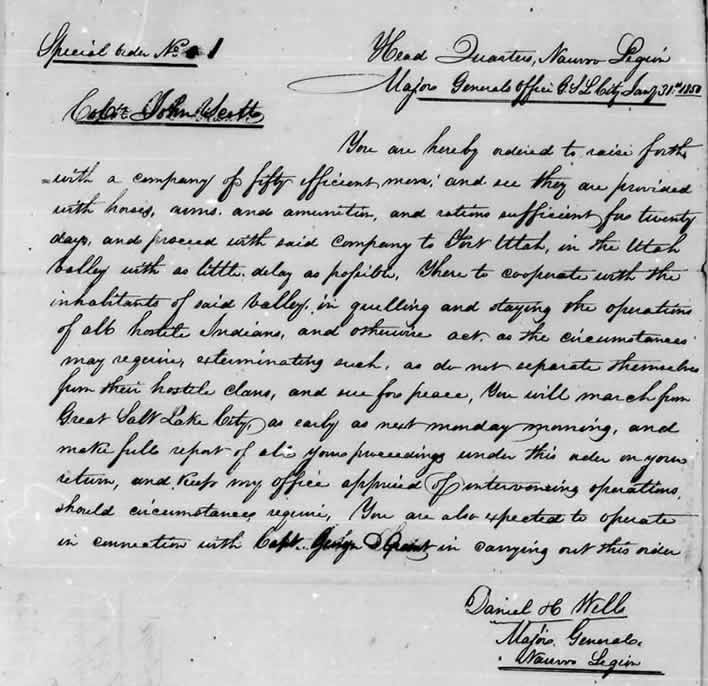 Special Order No. 1
Head Quarters, Nauvoo Legion
Major Generals Office G. S. L. City Jany 31st 1850
John Scott
You are hereby ordered to raise forth
=with a company of fifty efficient men; and see they are provided
with horses, arms. and amunition, and rations sufficient for twenty
days, and proceed with said company to Fort Utah, in the Utah
Valley with as little delay as possible, There to cooperate with the
inhabitants of said Valley, in quelling and staying the operations
of all hostile Indians, and otherwise act, as the circumstances
may require, exterminating such, as do not separate themselves
from their hostile clans, and sue for peace, You will march from
Great Salt Lake City, as early as next monday morning, and
make full report of all your proceedings under this order on your
return, and keep my office apprised of intervening operations,
should circumstances require, You are also expected to operate
in connection with Capt. Grant in carrying out this order
Daniel H Wells
Major General,
Nauvoo Legion